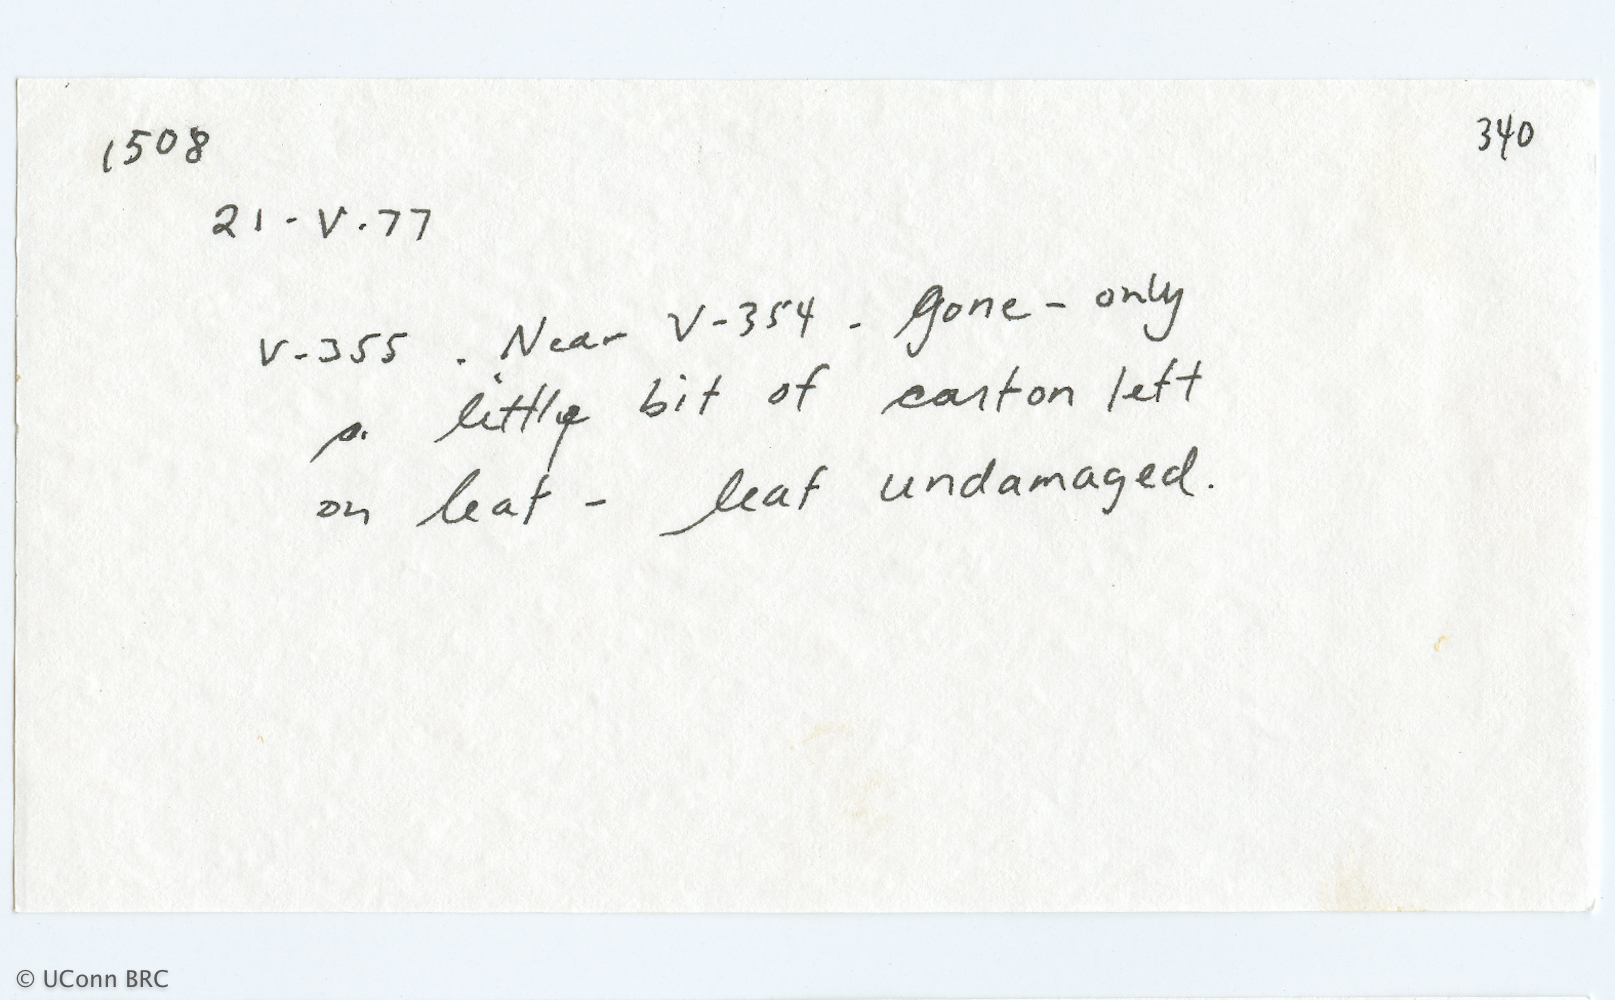 1508
340
21-V.77
V-355. Near V-354. Gone - only
a little bit of carton left
on leaf - leaf undamaged.
© UConn BRC